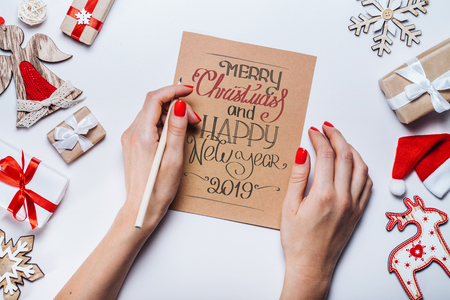 MERRY
Christmas
and
HAPPY
New year
2019